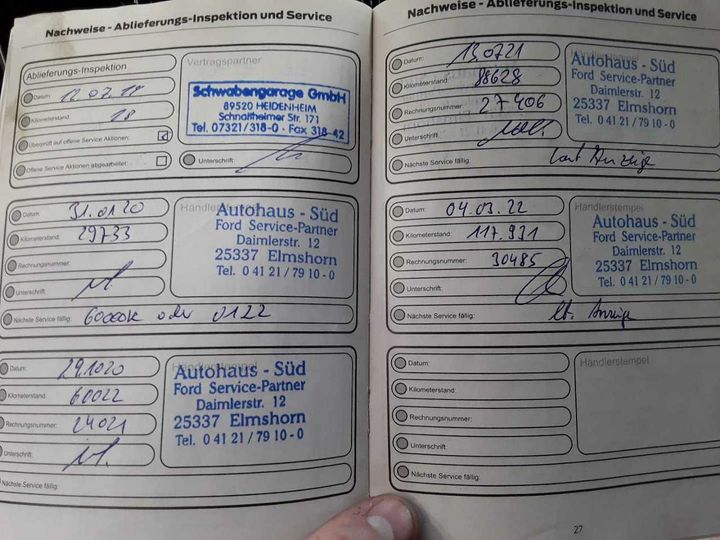 Nachweise - Ablieferungs-Inspektion und Service
Ablieferungs-Inspektion
Datum: 12.02.18
Kilometerstand: 28
Überprüft auf offene Service Aktionen:
Offene Service Aktionen abgearbeitet:
Vertragspartner
Schwabengarage GmbH
89520 HEIDENHEIM
Schnaitheimer Str. 171
Tel. 07321/318-0 · Fax 318-42
Unterschrift:
Datum: 31.01.20
Kilometerstand: 29733
Rechnungsnummer:
Unterschrift:
Nächste Service fällig: 60000k oder 01.22
Händlerstempel
Autohaus - Süd
Ford Service-Partner
Daimlerstr. 12
25337 Elmshorn
Tel. 0 41 21 / 79 10 - 0
Datum: 29.10.20
Kilometerstand: 60022
Rechnungsnummer: 24021
Unterschrift:
Nächste Service fällig:
Autohaus - Süd
Ford Service-Partner
Daimlerstr. 12
25337 Elmshorn
Tel. 0 41 21 / 79 10 - 0
Nachweise - Ablieferungs-Inspektion und Service
Datum: 13.07.21
Kilometerstand: 88628
Rechnungsnummer: 27406
Unterschrift:
Nächste Service fällig: laut Anzeige
Autohaus - Süd
Ford Service-Partner
Daimlerstr. 12
25337 Elmshorn
Tel. 0 41 21 / 79 10 - 0
Datum: 04.03.22
Kilometerstand: 117.931
Rechnungsnummer: 30485
Unterschrift:
Nächste Service fällig: lt. Anzeige
Händlerstempel
Autohaus - Süd
Ford Service-Partner
Daimlerstr. 12
25337 Elmshorn
Tel. 0 41 21 / 79 10 - 0
Datum:
Kilometerstand:
Rechnungsnummer:
Unterschrift:
Nächste Service fällig:
Händlerstempel
27